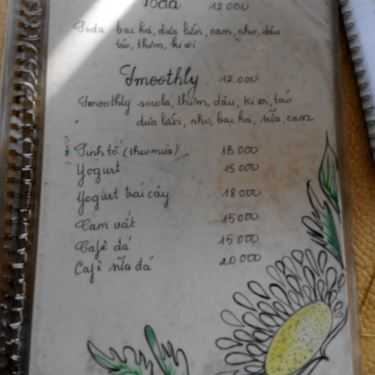 Soda 12 000
Soda bạc hà, dưa lưới, cam, nho, dâu
táo, thơm, kiwi
Smoothly 12 000
Smoothly soda, thơm, dâu, kiwi, táo
dưa lưới, nho, bạc hà, sữa, cam
Sinh tố (theo mùa) 15 000
Yogurt 15 000
Yogurt trái cây 18 000
Cam vắt 15 000
Cafê đá 15 000
Cafê sữa đá 20 000